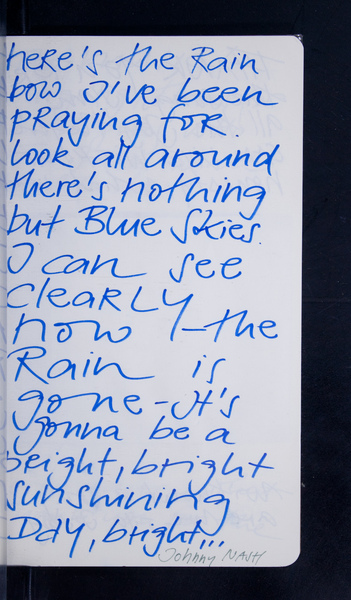 here's the Rain
bow I've been
pRaying for.
look all around
there's nothing
but Blue Skies.
I can see
cleaRLy
now - the
Rain is
gone - it's
gonna be a
bright, bright
sunshining
Day, bright...
Johnny NASH